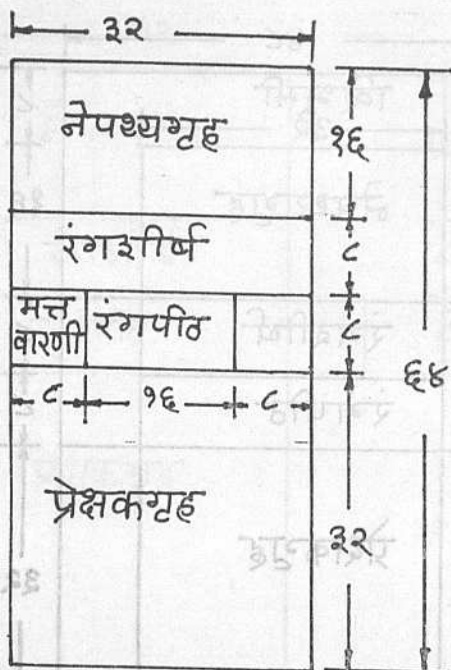 ३२
नेपथ्यगृह
१६
रंगशीर्ष
८
मत्त
वारणी
रंगपीठ
८
६४
८
१६
८
प्रेक्षकगृह
३२